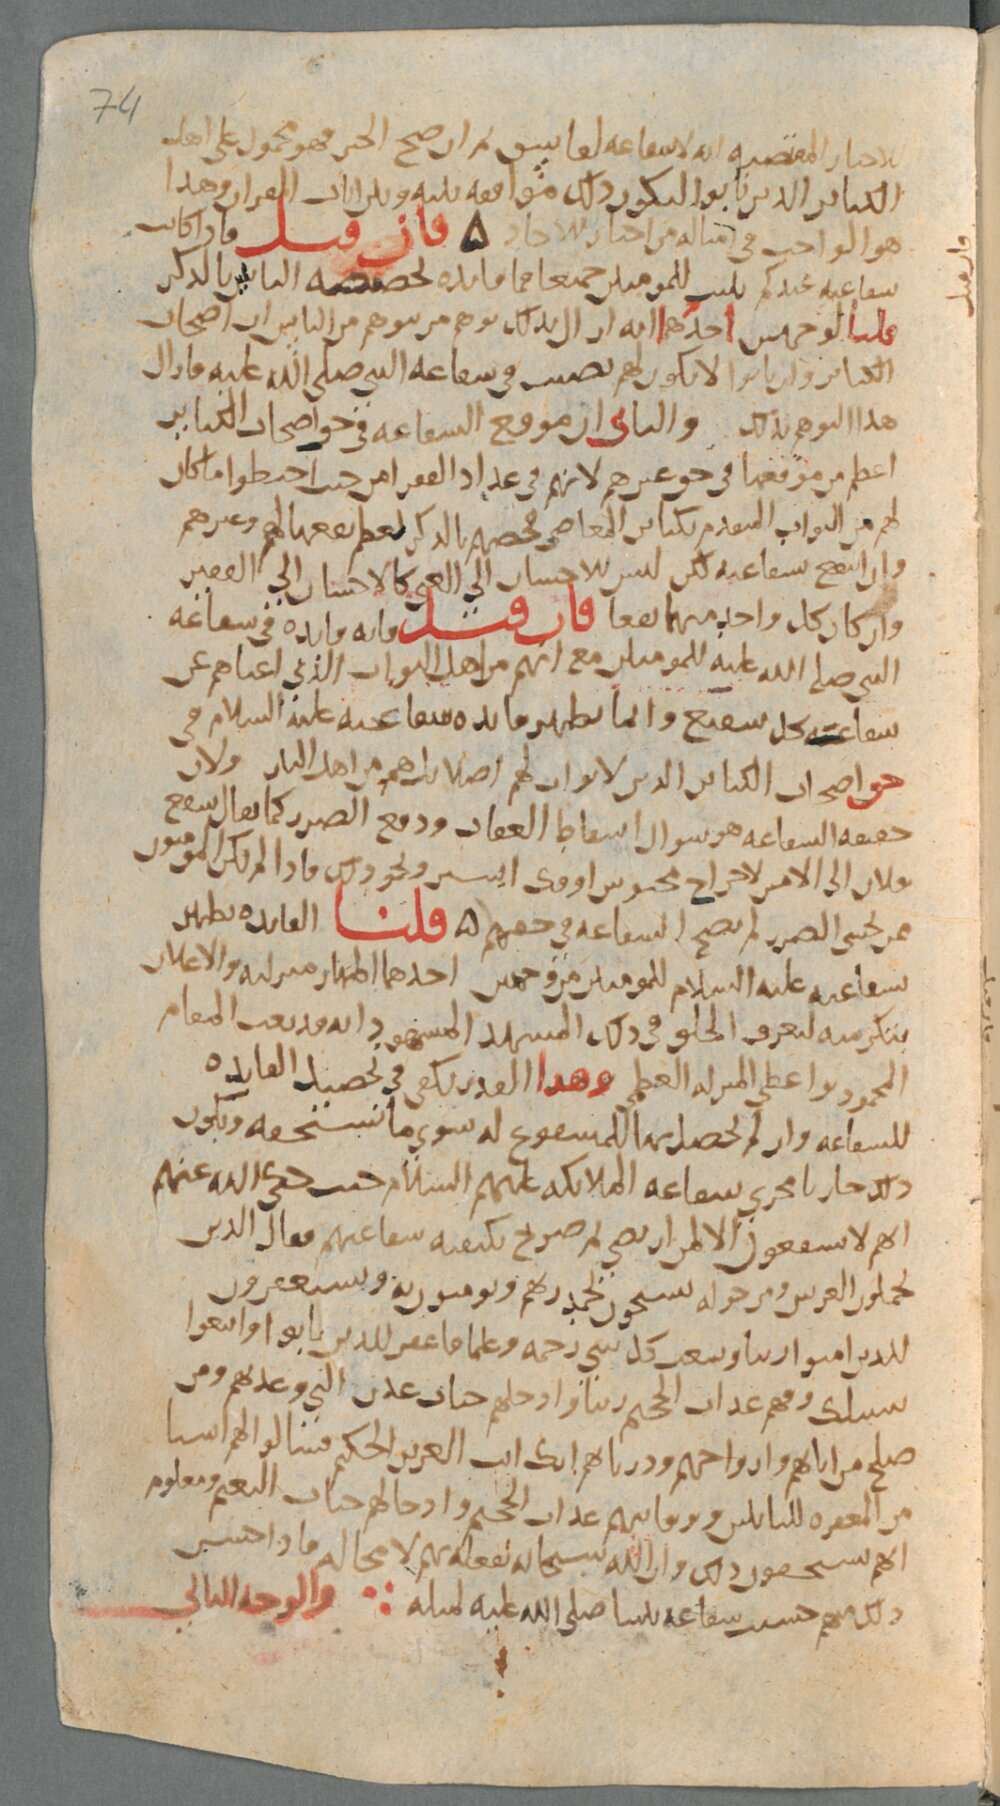 74
للاخبار المقتضيه انه لا شفاعه لفاسق ثم ان صح الخبر فهو محمول على اهل
الكبائر الذين تابوا ليكون ذلك موافقه بينه وبين ايات القران وهذا
هو الواجب في امثاله من اخبار الاحاد ۵ فان قيل فاذا كانت
شفاعته عندكم تثبت للمومنين جميعا فما فايده تخصيصه التايبين بالذكر
قلنا لوجهين احدهما انه ازال بذلك توهم من يتوهم من الناس ان اصحاب
الكبائر وان تابوا لا يكون لهم نصيب في شفاعه النبي صلى الله عليه فازال
هذا التوهم بذلك والثاني ان موقع الشفاعه في حق اصحاب الكبائر
اعظم من موقعها في حق غيرهم لانهم في عداد الفقرا من حيث احبطوا ما كان
لهم من الثواب المتقدم بكبائر المعاصي فخصهم بالذكر لعظم نفعها لهم وغيرهم
وان انتفع بشفاعته لكن ليس الاحسان الى الغني كالاحسان الى الفقير
وان كان كل واحد منهما نفعا فان قيل فانه فايده في شفاعه
النبي صلى الله عليه للمومنين مع انهم من اهل الثواب الذي اغناهم عن
شفاعه كل شفيع وانما تظهر فايده شفاعته عليه السلام في
حق اصحاب الكبائر الذين لا ثواب لهم اصلا بل هم من اهل النار ولان
حقيقه الشفاعه هو سوال اسقاط العقاب ودفع الضرر كما يقال شفع
فلان الى الامير لاخراج محبوس او فك اسير ونحو ذلك فاذا لم يكن المومنون
ممن يخشى الضرر لم تصح الشفاعه في حقهم ۵ قلنا الفايده تظهر
بشفاعته عليه السلام للمومنين من وجهين احدهما اظهار منزلته والاعلان
بتكرمته ليعرف الخلق في ذلك المشهد المشهود انه قد بعث المقام
المحمود واعطي المنزله العظمى وهذا القدر يكفي في تحصيل الفايده
للشفاعه وان لم تحصل بها للمشفوع له سوى ما يستحقه ويكون
ذلك جاريا مجرى شفاعه الملائكه عليهم السلام حيث حكى الله عنهم
انهم لا يشفعون الا لمن ارتضى ثم صرح بكيفيه شفاعتهم فقال الذين
يحملون العرش ومن حوله يسبحون بحمد ربهم ويومنون به ويستغفرون
للذين امنوا ربنا وسعت كل شي رحمه وعلما فاغفر للذين تابوا واتبعوا
سبيلك وقهم عذاب الجحيم ربنا وادخلهم جنات عدن التي وعدتهم ومن
صلح من ابائهم وازواجهم وذرياتهم انك انت العزيز الحكيم فسالوا لهم اشيا
من المغفره للتايبين ووقايتهم عذاب الجحيم وادخالهم جنات النعيم ومعلوم
انهم يستحقون ذلك وان الله سبحانه يفعله بهم لا محاله فاذا حسن
ذلك منهم حسنت شفاعه نبينا صلى الله عليه لمثله والوجه الثاني